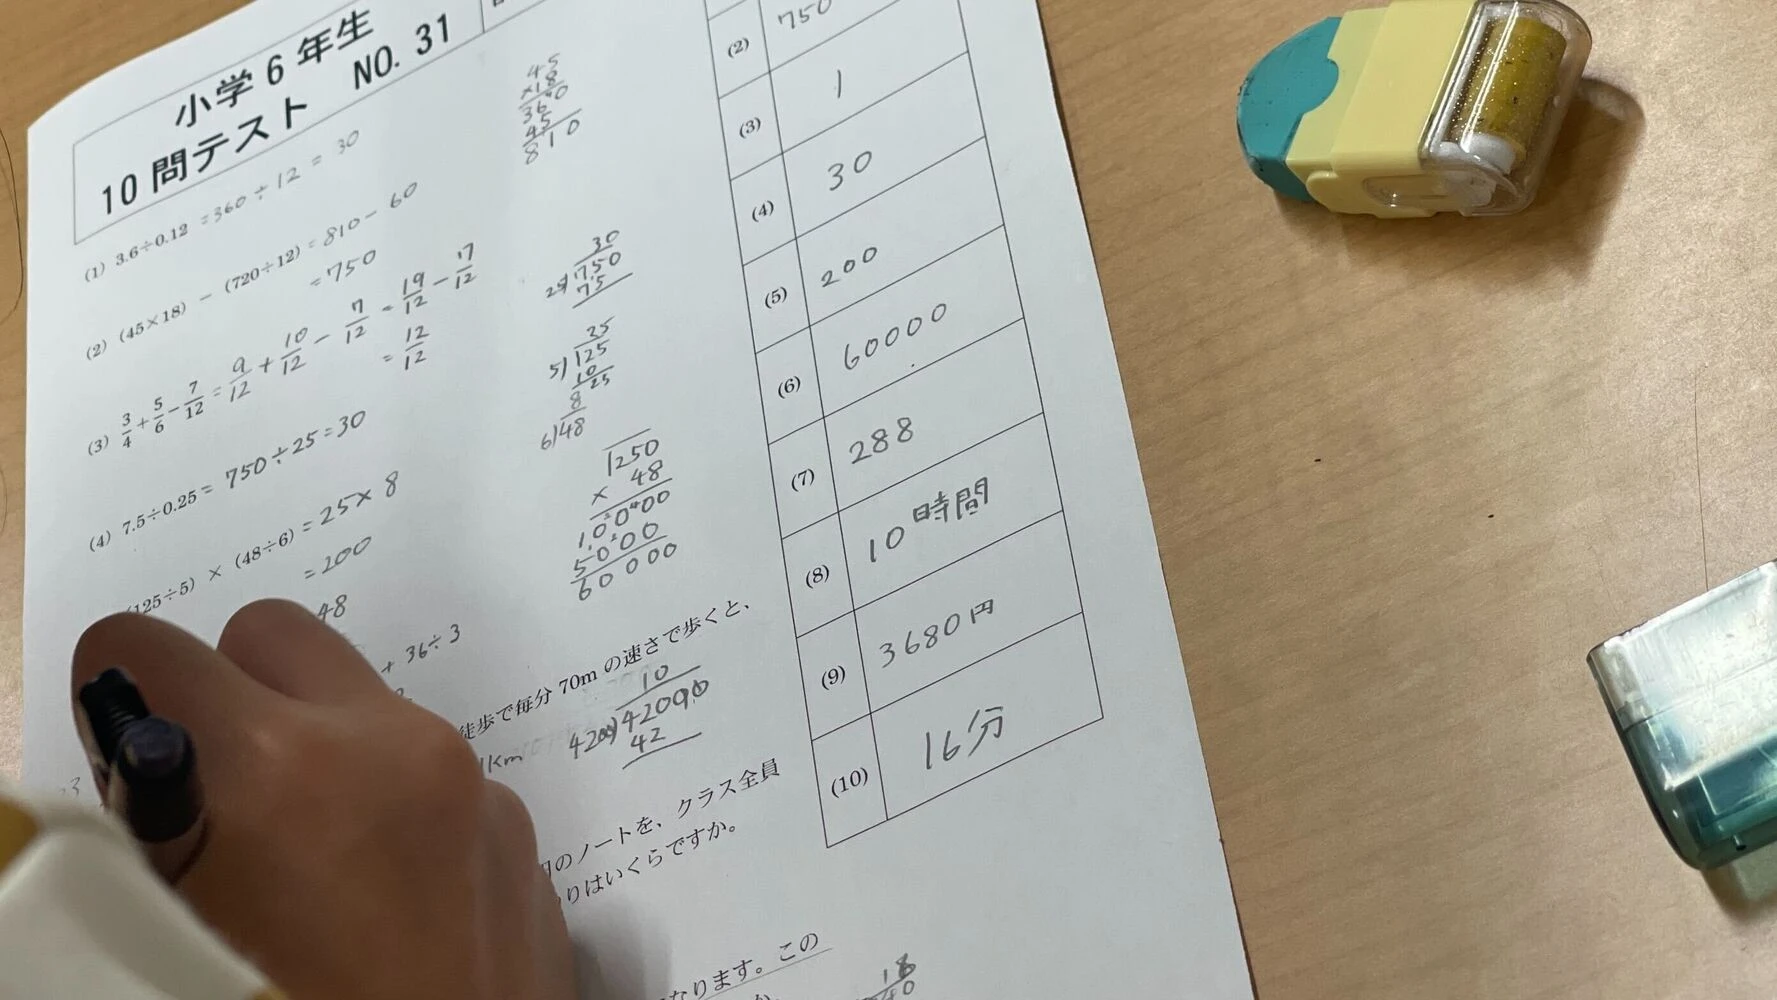 小学6年生
10問テスト NO. 31
(1) 3.6÷0.12 =360÷12 = 30
(2) (45×18) − (720÷12) = 810− 60
=750
(3) 3/4+5/6−7/12=9/12+10/12−7/12=19/12−17/12
=12/12
(4) 7.5÷0.25= 750÷25=30
(125÷5) × (48÷6) =25×8
=200
48
+ 36÷3
徒歩で毎分 70m の速さで歩くと、
1km
のノートを、クラス全員
りはいくらですか。
なります。この
45
×18
360
45
810
30
750
75
25
5)125
10
25
8
6)48
1250
× 48
10000
5000
60000
10
42000
42
18
(2) 750
(3) 1
(4) 30
(5) 200
(6) 60000
(7) 288
(8) 10時間
(9) 3680円
(10) 16分